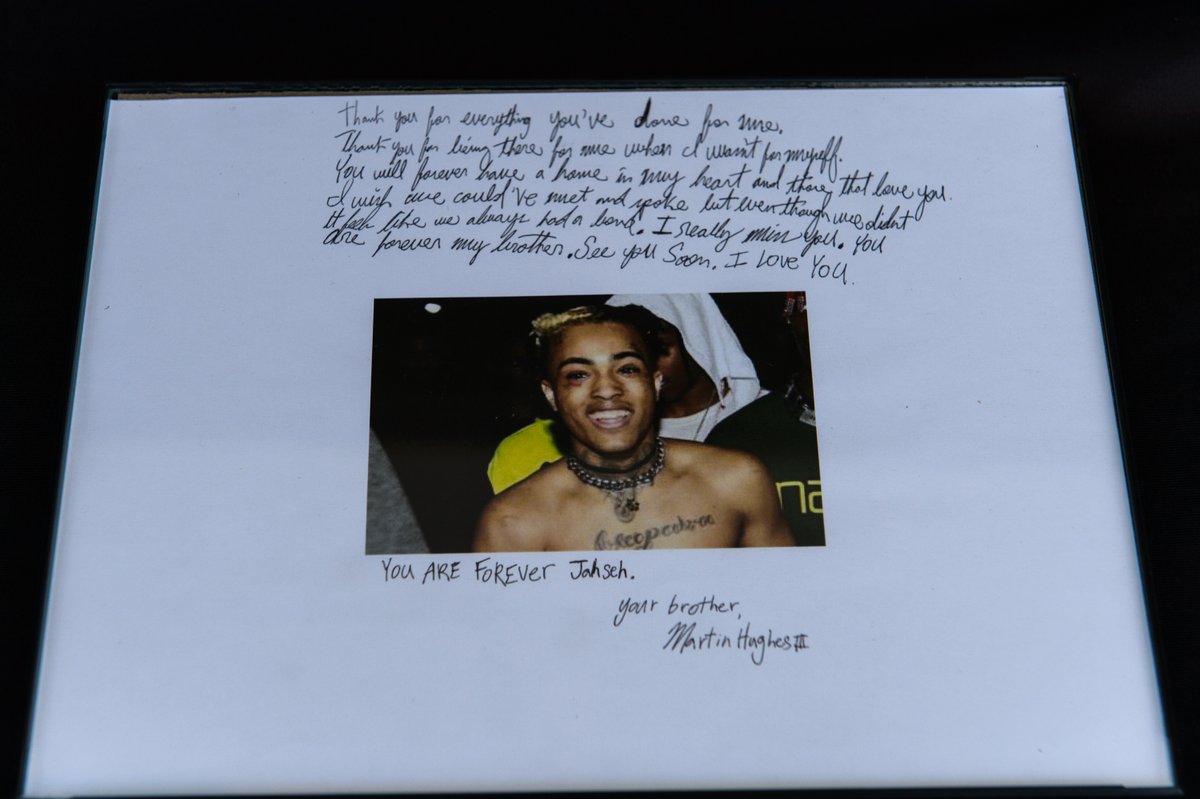 Thank you for everything you've done for me.
Thank you for being there for me when I wasn't for myself.
You will forever have a home in my heart and those that love you.
I wish we could've met and spoke but even though we didnt
It feels like we always had a bond. I really miss you. You
are forever my brother. See you Soon. I Love You.
Cleopatra
na
YOU ARE FOREVER Jahseh.
your brother,
Martin Hughes III